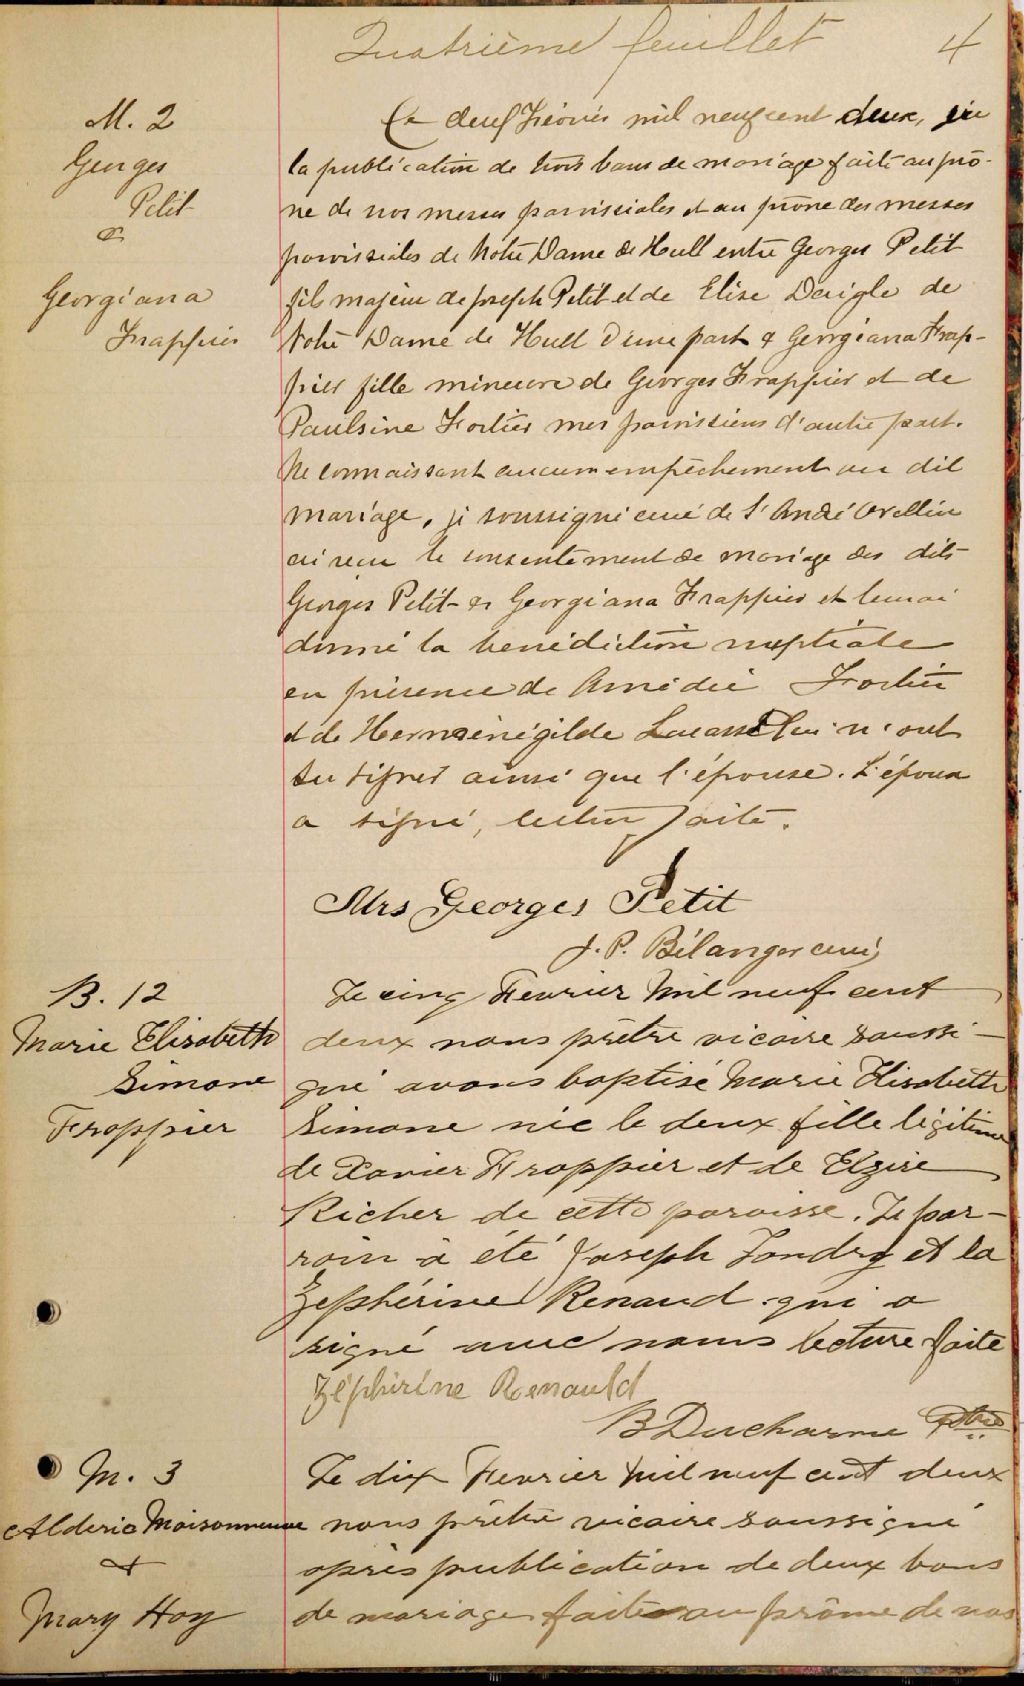 Quatrième feuillet 4
M. 2
Georges
Petit
&
Georgiana
Frappier
Le deux Février mil neuf cent deux, vu
la publication de trois bans de mariage faite au prô-
ne de nos messes paroissiales et au prône des messes
paroissiales de Notre Dame de Hull entre Georges Petit
fils majeur de Joseph Petit et de Elise Daigle de
Notre Dame de Hull d'une part & Georgiana Frap-
pier fille mineure de Georges Frappier et de
Paulsine Fortier mes paroissiens d'autre part.
Ne connaissant aucun empêchement au dit
mariage, je soussigné curé de St André Avellin
ai reçu le consentement de mariage des dits
Georges Petit & Georgiana Frappier et leur ai
donné la bénédiction nuptiale
en présence de Amédée Fortier
et de Herménégilde Lacasse qui n'ont
su signer ainsi que l'épouse. L'époux
a signé, lecture faite.
Mrs Georges Petit
J. P. Bélanger curé
B. 12
Marie Elisabeth
Simone
Frappier
Le cinq Fevrier Mil neuf cent
deux nous prêtre vicaire soussi-
gné avons baptisé Marie Elisabeth
Simone née le deux fille légitime
de Xavier Frappier et de Elzire
Richer de cette paroisse. Le par-
rain a été Joseph Landry et la
Zephérine Renaud qui a
signé avec nous lecture faite
Zéphirine Renauld
B Ducharme Ptre
M. 3
Alderic Maisonneuve
&
Mary Hoy
Le dix Fevrier Mil neuf cent deux
nous prêtre vicaire soussigné
après publication de deux bans
de mariage faite au prône de nos